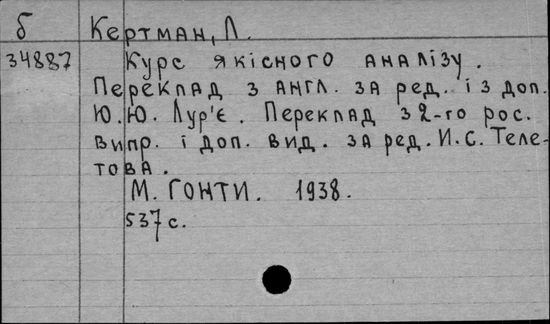 б Кертман, Л.
34887 Курс якісного аналізу.
Переклад з англ. за ред. і з доп.
Ю.Ю. Лур'є. Переклад з 2-го рос.
випр. і доп. вид. за ред. И.С. Теле-
това.
М. ГОНТИ. 1938.
537 с.